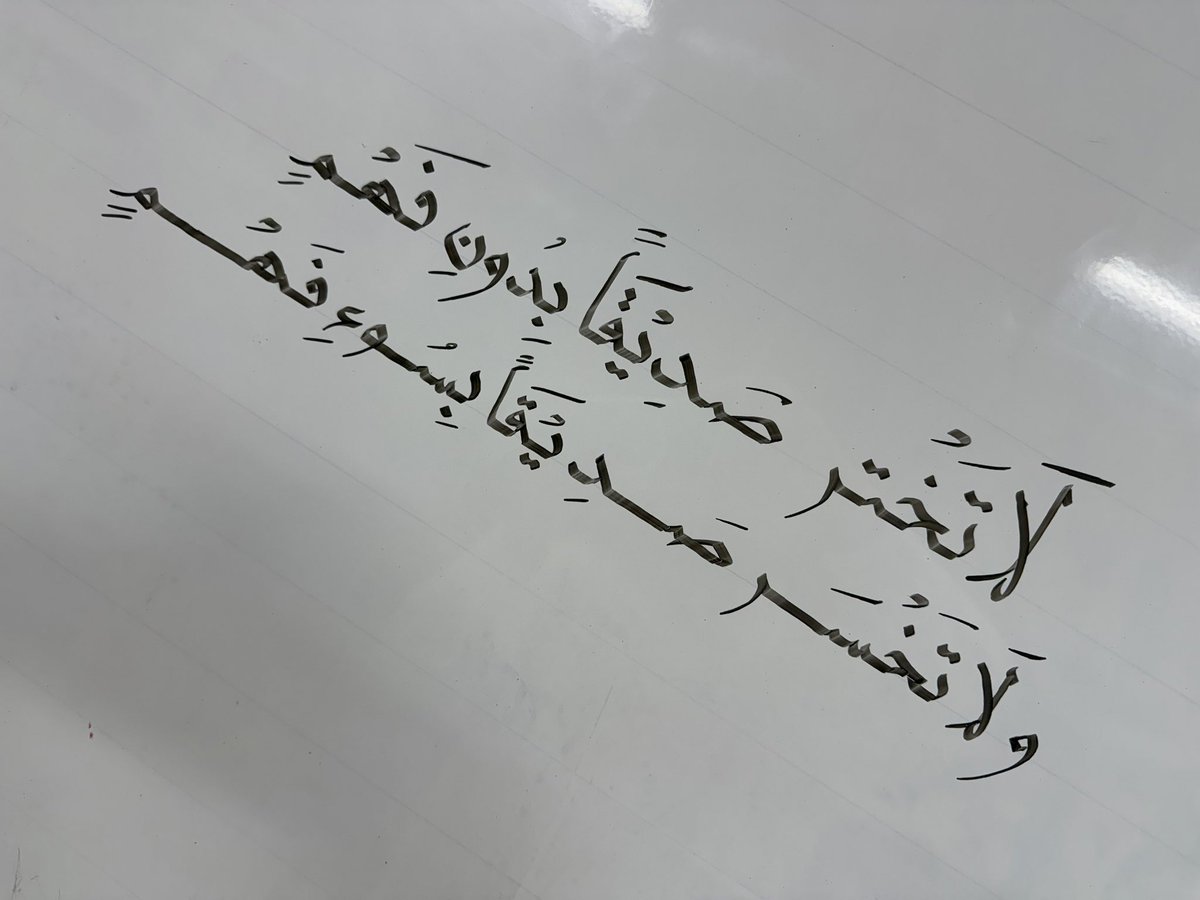 لَا تَخْتَر صَدِيْقَاً بِدُونِ فَهْمٍ
وَلَا تَخْسَر صَدِيْقَاً بِسُوءِ فَهْمٍ